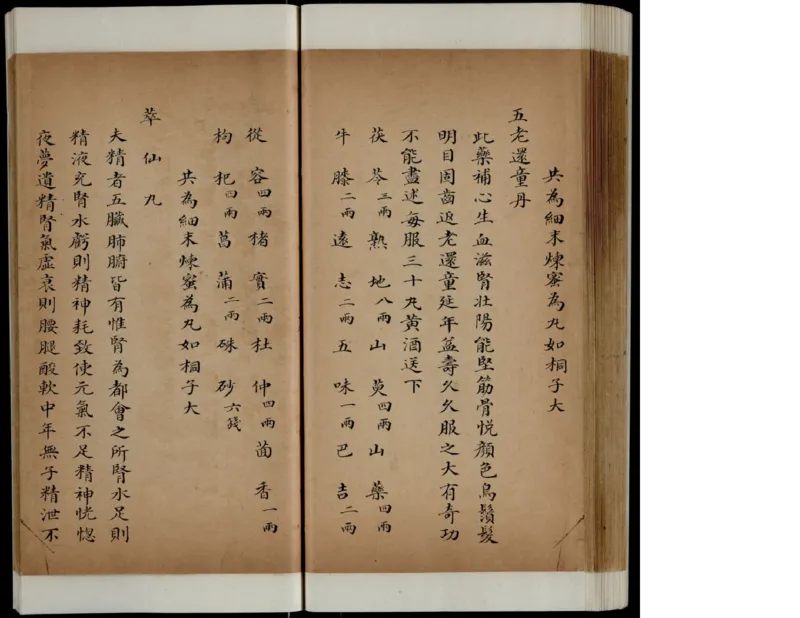 共為細末煉蜜為丸如桐子大
五老還童丹
此藥補心生血滋腎壯陽能堅筋骨悅顏色烏鬚髮
明目固齒返老還童延年益壽久久服之大有奇功
不能盡述每服三十丸黃酒送下
茯苓三兩熟地八兩山萸四兩山藥四兩
牛膝二兩遠志二兩五味一兩巴吉二兩
從容四兩楮實二兩杜仲四兩茴香一兩
枸杞四兩菖蒲二兩硃砂六錢
共為細末煉蜜為丸如桐子大
萃仙丸
夫精者五臟肺腑皆有惟腎為都會之所腎水足則
精液充腎水虧則精神耗致使元氣不足精神恍惚
夜夢遺精腎氣虛衰則腰腿酸軟中年無子精泄不